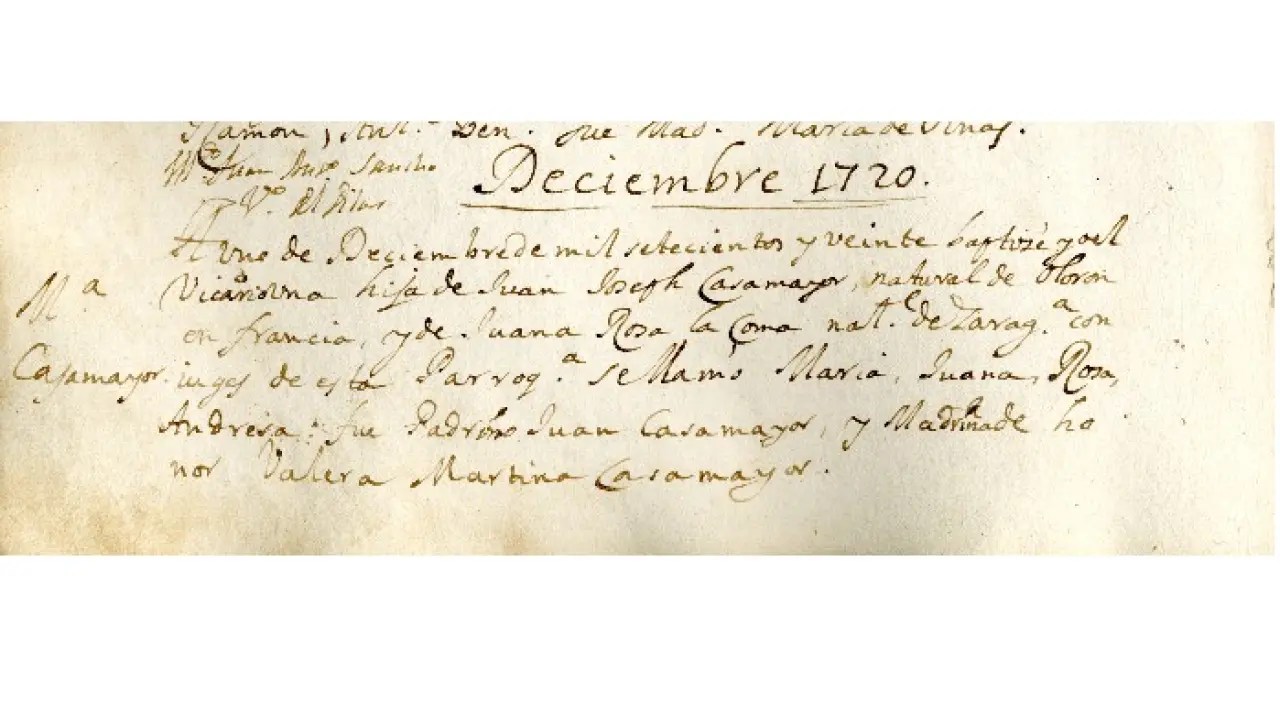 Ramon, Ant.ᵃ Den. fue Mad. Maria de Vinas.
Mº Juan Anº Sancho
Vº Del Pilar
Deciembre 1720.
A Uno de Deciembre de mil setecientos y veinte baptize yo el
Vicario Una hija de Juan Joseph Casamayor, natural de Oloron
en francia, y de Juana Rosa la Coma nat.ˡ de Zarag.ᵃ con
iuges de esta Parroq.ᵃ se llamò Maria, Juana, Rosa,
Andresa: fue Padrino Juan Casamayor, y Madrina de ho
nor Valera Martina Casamayor.
M.ᵃ
Casamayor.